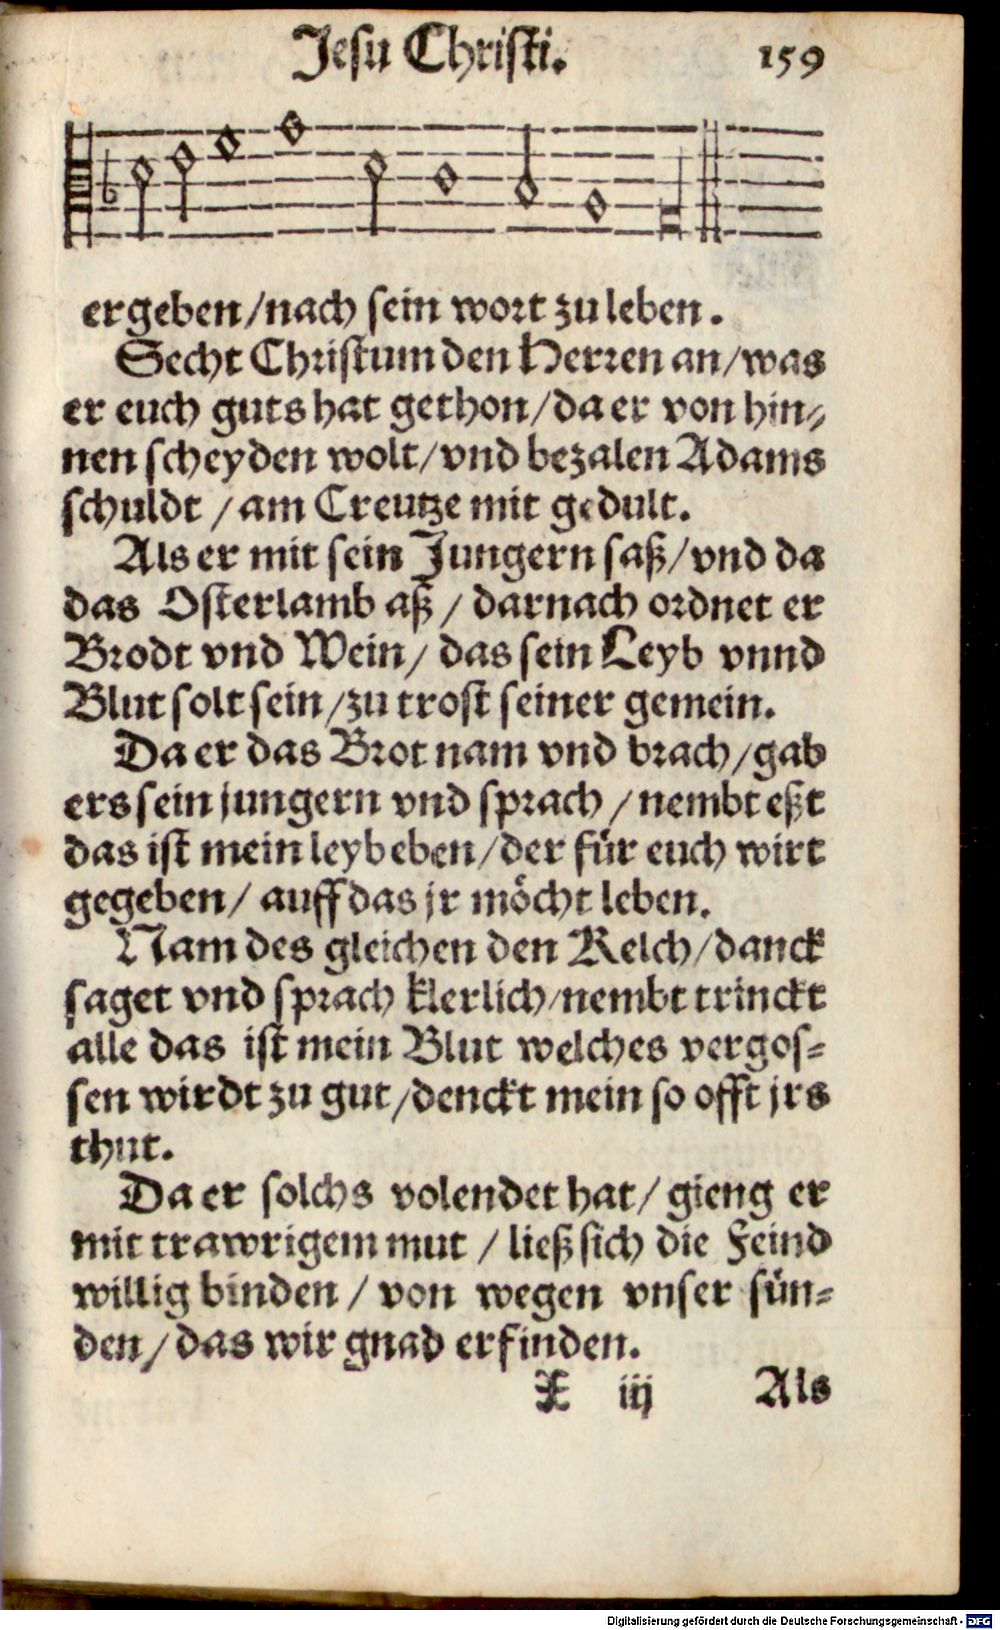 Jesu Christi. 159
ergeben/nach sein wort zu leben.
Secht Christum den Herren an/was
er euch guts hat gethon/da er von hin-
nen scheyden wolt/vnd bezalen Adams
schuldt / am Creutze mit gedult.
Als er mit sein Jungern saß/vnd da
das Osterlamb aß / darnach ordnet er
Brodt vnd Wein/ das sein Leyb vnnd
Blut solt sein/zu trost seiner gemein.
Da er das Brot nam vnd brach/gab
ers sein jungern vnd sprach / nembt eßt
das ist mein leyb eben/der für euch wirt
gegeben/ auff das jr möcht leben.
Nam des gleichen den Kelch/danck
saget vnd sprach klerlich/nembt trinckt
alle das ist mein Blut welches vergos-
sen wirdt zu gut/denckt mein so offt jrs
thut.
Da er solchs volendet hat/ gieng er
mit trawrigem mut / ließ sich die Feind
willig binden / von wegen vnser sün-
den/das wir gnad erfinden.
X iij Als
Digitalisierung gefördert durch die Deutsche Forschungsgemeinschaft - DFG